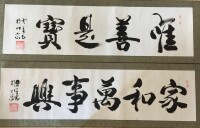 惟善是寶
家和萬事興